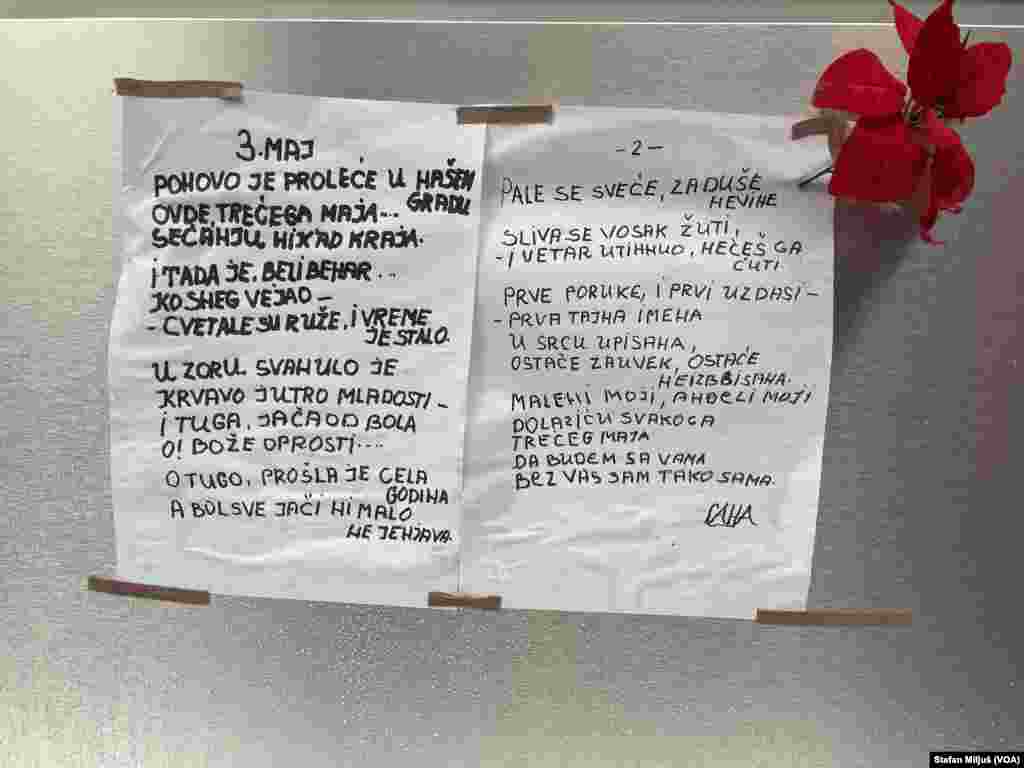 3. MAJ
POHOVO JE PROLEĆE U HAŠEM
GRADU
OVDE, TREĆEGA MAJA...
SEĆAHJU HIKAD KRAJA.
I TADA JE, BELI BEHAR...
KO SHEG VEJAO –
- CVETALE SU RUŽE, I VREME
JE STALO.
U ZORU SVAHULO JE
KRVAVO JUTRO MLADOSTI –
- I TUGA, JAČA OD BOLA
O! BOŽE OPROSTI....
O TUGO, PROŠLA JE CELA
GODIHA
A BOL SVE JAČI HI MALO
HE JEHJAVA.
- 2 -
PALE SE SVEĆE, ZA DUŠE
HEVIHE
SLIVA SE VOSAK ŽUTI,
- I VETAR UTIHHUO, HEĆEŠ GA
ČUTI.
PRVE PORUKE, I PRVI UZDASI –
- PRVA TAJHA IMEHA
U SRCU UPISAHA,
OSTAĆE ZAUVEK, OSTAĆE
HEIZBBISAHA.
MALEHI MOJI, AHĐELI MOJI
DOLAZIĆU SVAKOGA
TREĆEG MAJA
DA BUDEM SA VAMA
BEZ VAS SAM TAKO SAMA.
Stefan Miljuš (VOA)